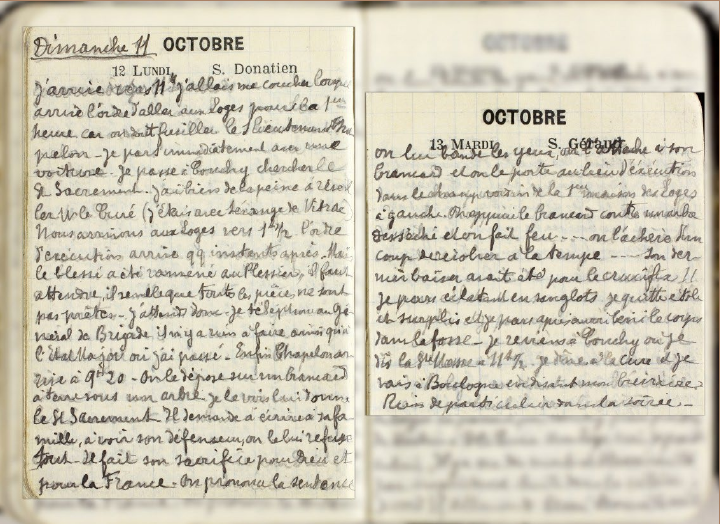 Dimanche 11 OCTOBRE
12 LUNDI S. Donatien
j'allais me coucher lorsque
arrive l'ordre d'aller aux Loges pour la 1ère
heure car on doit fusiller le s/lieutenant Cha
pelon - Je pars immédiatement avec une
voiture. Je passe à Conchy chercher le
St Sacrement - J'ai bien de la peine à réveil
ler Mr le Curé (j'étais avec Lérange de Vitrac
Nous arrivons aux Loges vers 1h 1/2 l'ordre
d'exécution arrive qq instants après - Mais
le blessé a été ramené au Plessier, il faut
attendre, il semble que toutes les pièces ne sont
pas prêtes - J'attends donc - Je téléphone au Gé
néral de Brigade il n'y a rien à faire ainsi qu'à
l'Etat Major où j'ai passé - Enfin Chapelon ar
rive à 9h 20 - On le dépose sur un brancard
à terre sous un arbre. Je le vois lui donne
le St Sacrement. Il demande à écrire à sa fa
mille, à voir son défenseur, on le lui refuse
tout - Il fait son sacrifice pour Dieu et
pour la France - On prononce la sentence
OCTOBRE
13 MARDI S. Gérand
on lui bande les yeux, on l'attache à son
brancard et on le porte au lieu d'exécution
dans le de la 1ère maison des Loges
à gauche. On appuie le brancard contre un arbre
desséché et on fait feu --- on l'achève d'un
coup de revolver à la tempe --- Son der
nier baiser avait été pour le crucifix !!
Je pars éclatant en sanglots je quitte étole
et surplis et je pars après avoir béni le corps
dans la fosse - Je reviens à Conchy où je
dis la Ste Messe à 11h 1/2 - Je dîne à la cure et je
vais à Boulogne en disant mon bréviaire.
Rien de particulier dans la soirée -